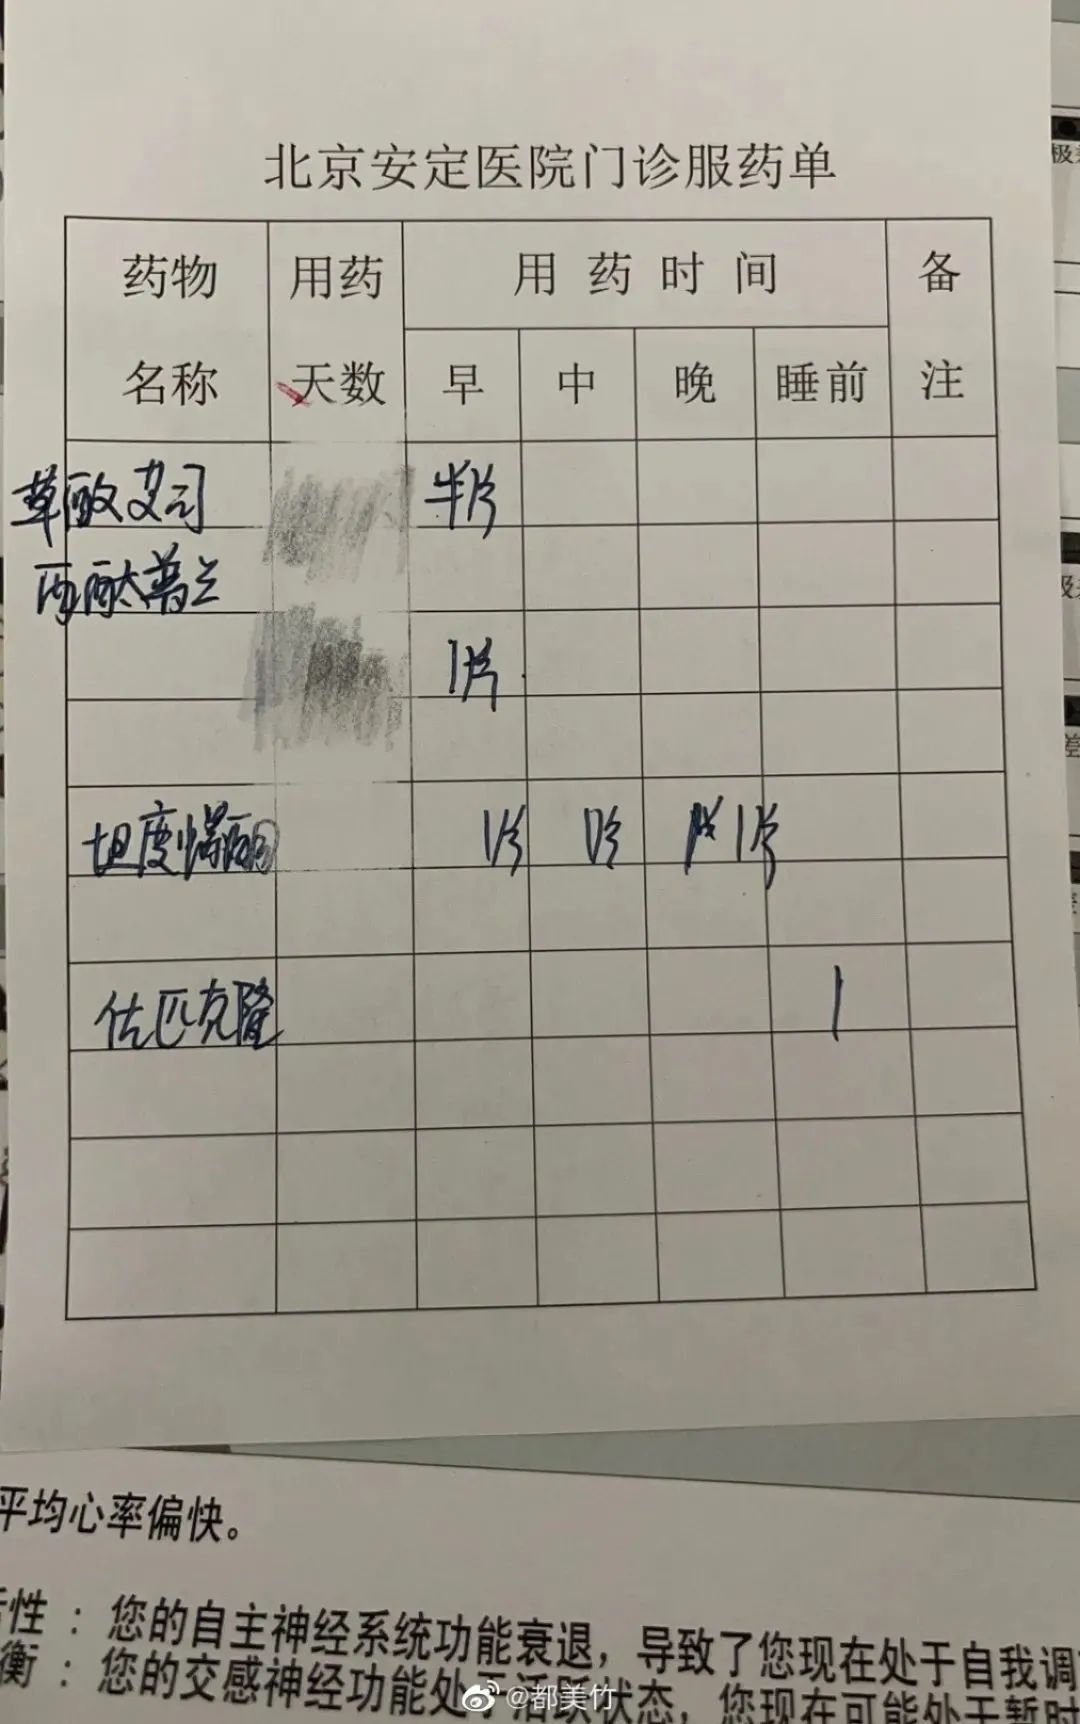 北京安定医院门诊服药单
药物 用药 用 药 时 间 备
名称 天数 早 中 晚 睡前 注
草酸艾司 半片
西酞普兰
1片
坦度螺酮 1片 1片 1片
佐匹克隆 1
平均心率偏快。
性：您的自主神经系统功能衰退，导致了您现在处于自我调
衡：您的交感神经功能处于活跃状态，您现在可能处于暂时
@都美竹